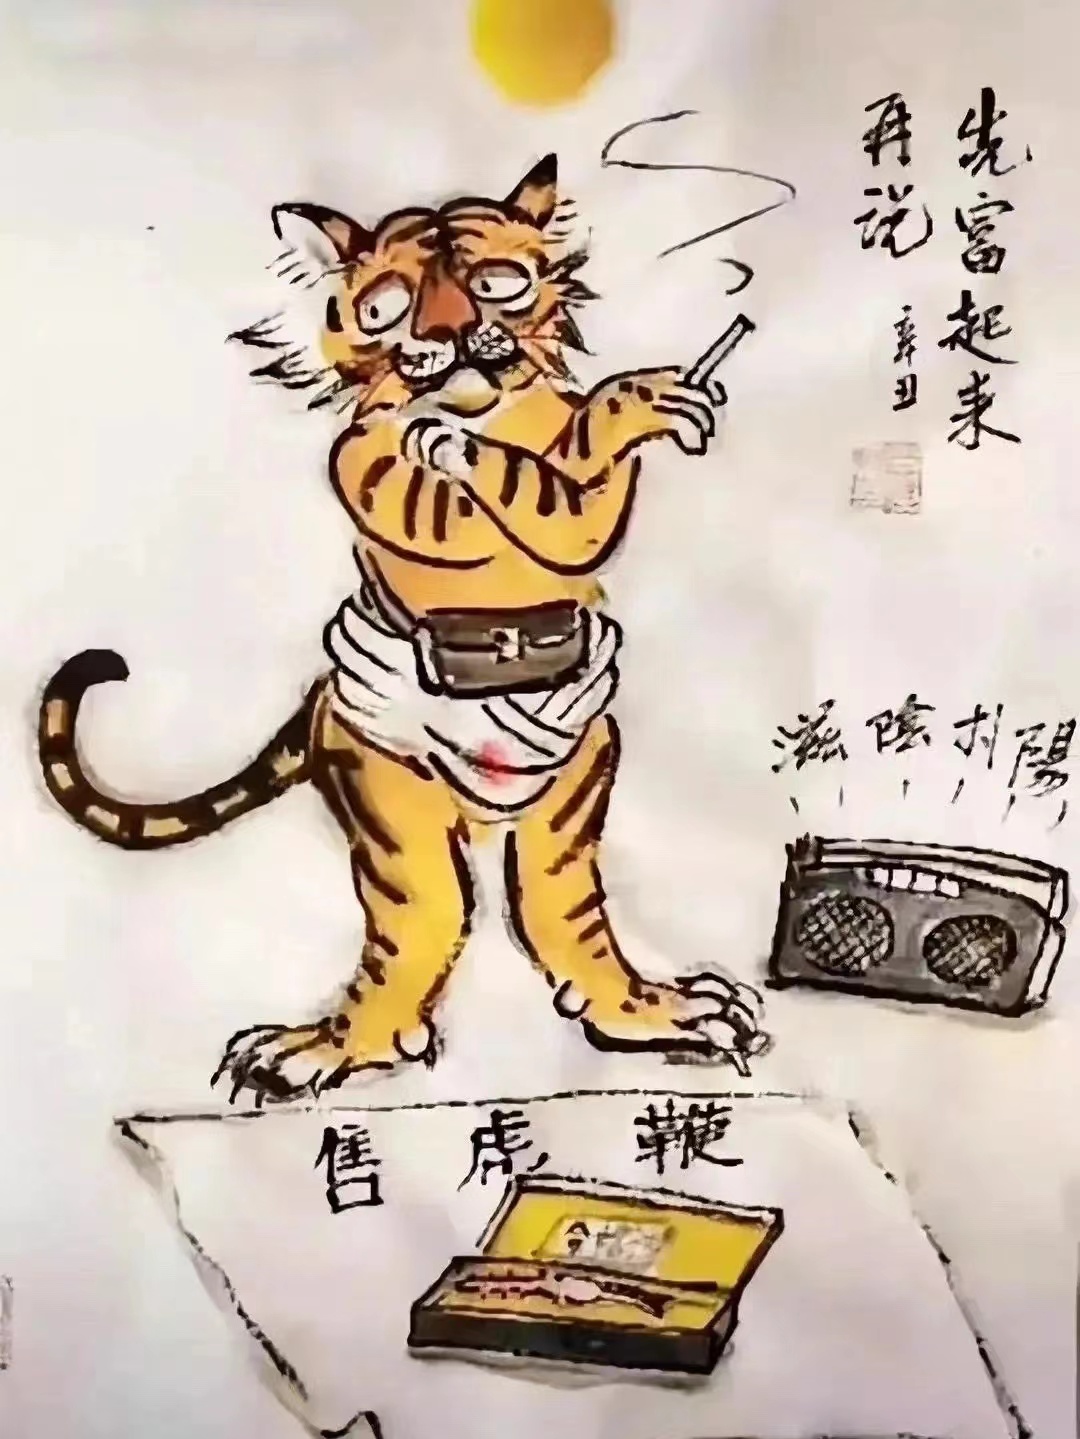 先富起来
再说
辛丑
滋陰补陽
售虎鞭